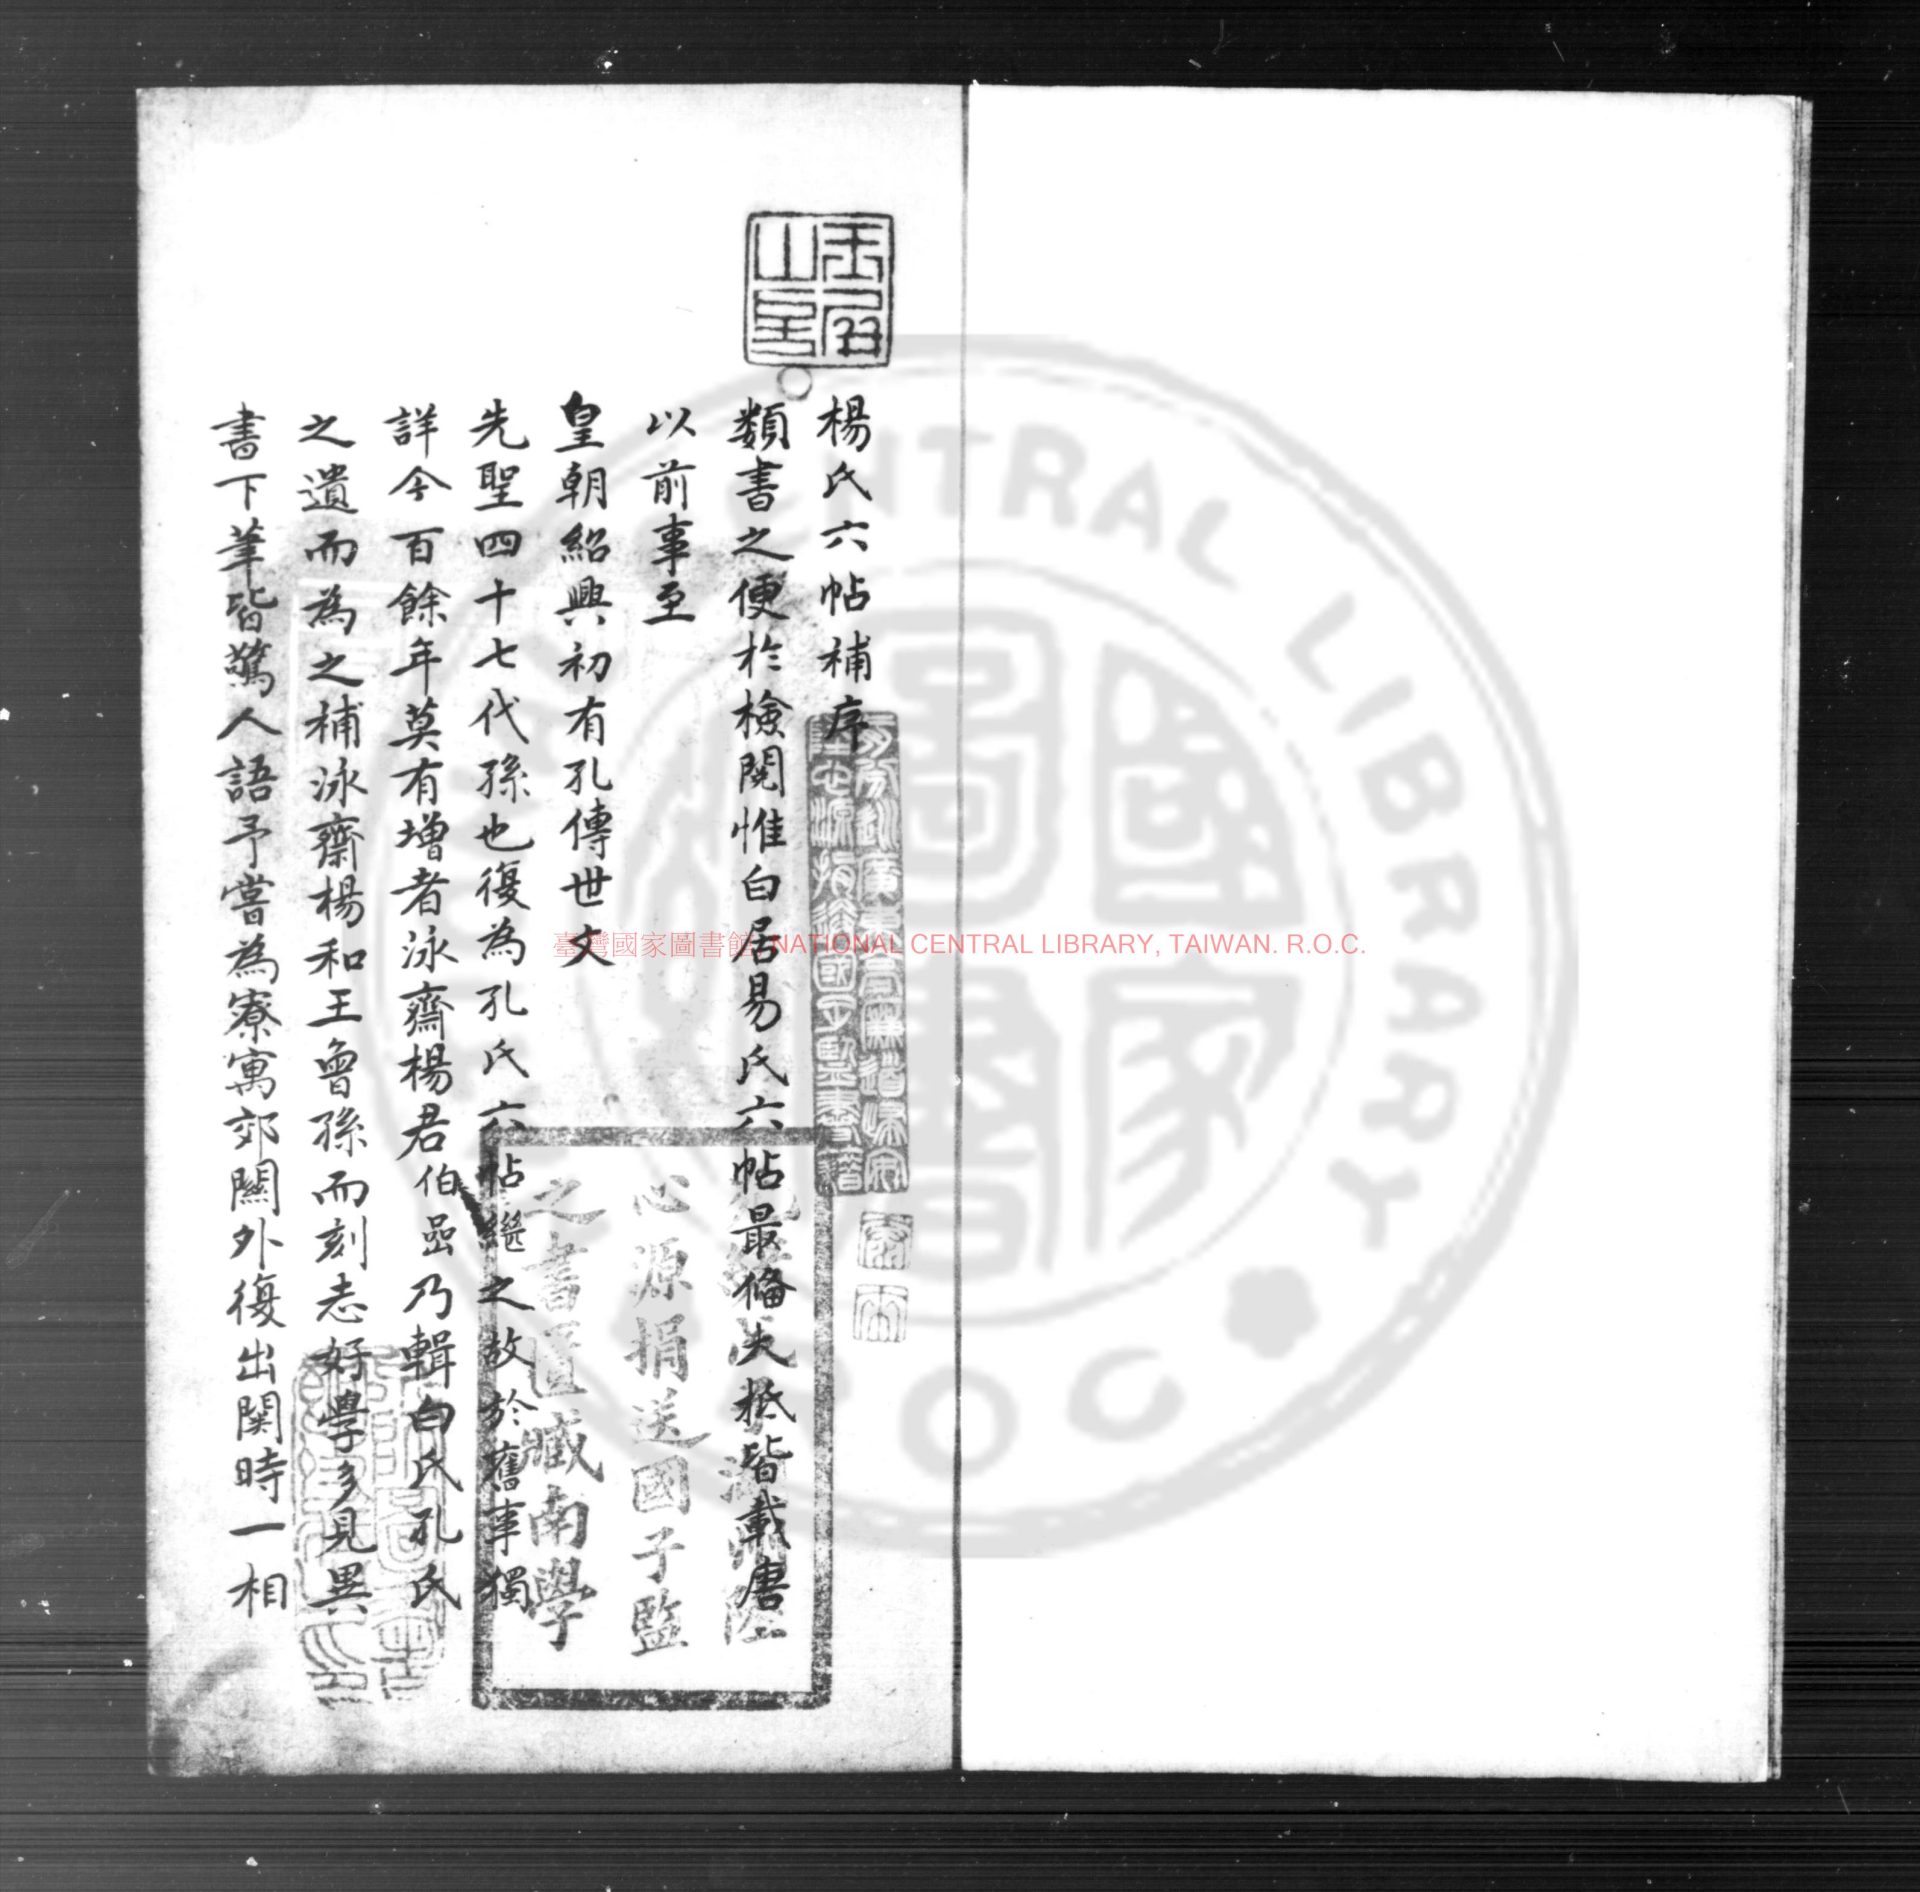 楊氏六帖補序
類書之便於檢閱惟白居易氏六帖最備夫抵皆載唐
以前事至
皇朝紹興初有孔傳世文
先聖四十七代孫也復為孔氏六帖繼之故於舊事獨
詳今百餘年莫有增者泳齋楊君伯嵒乃輯白氏孔氏
之遺而為之補泳齋楊和王曾孫而刻志好學多見異
書下筆皆驚人語予嘗為寮寓郊關外復出関時一相
心源捐送國子監
之書匱藏南學
臺灣國家圖書館 NATIONAL CENTRAL LIBRARY, TAIWAN. R.O.C.
NATIONAL CENTRAL LIBRARY
R.O.C
國家圖書館